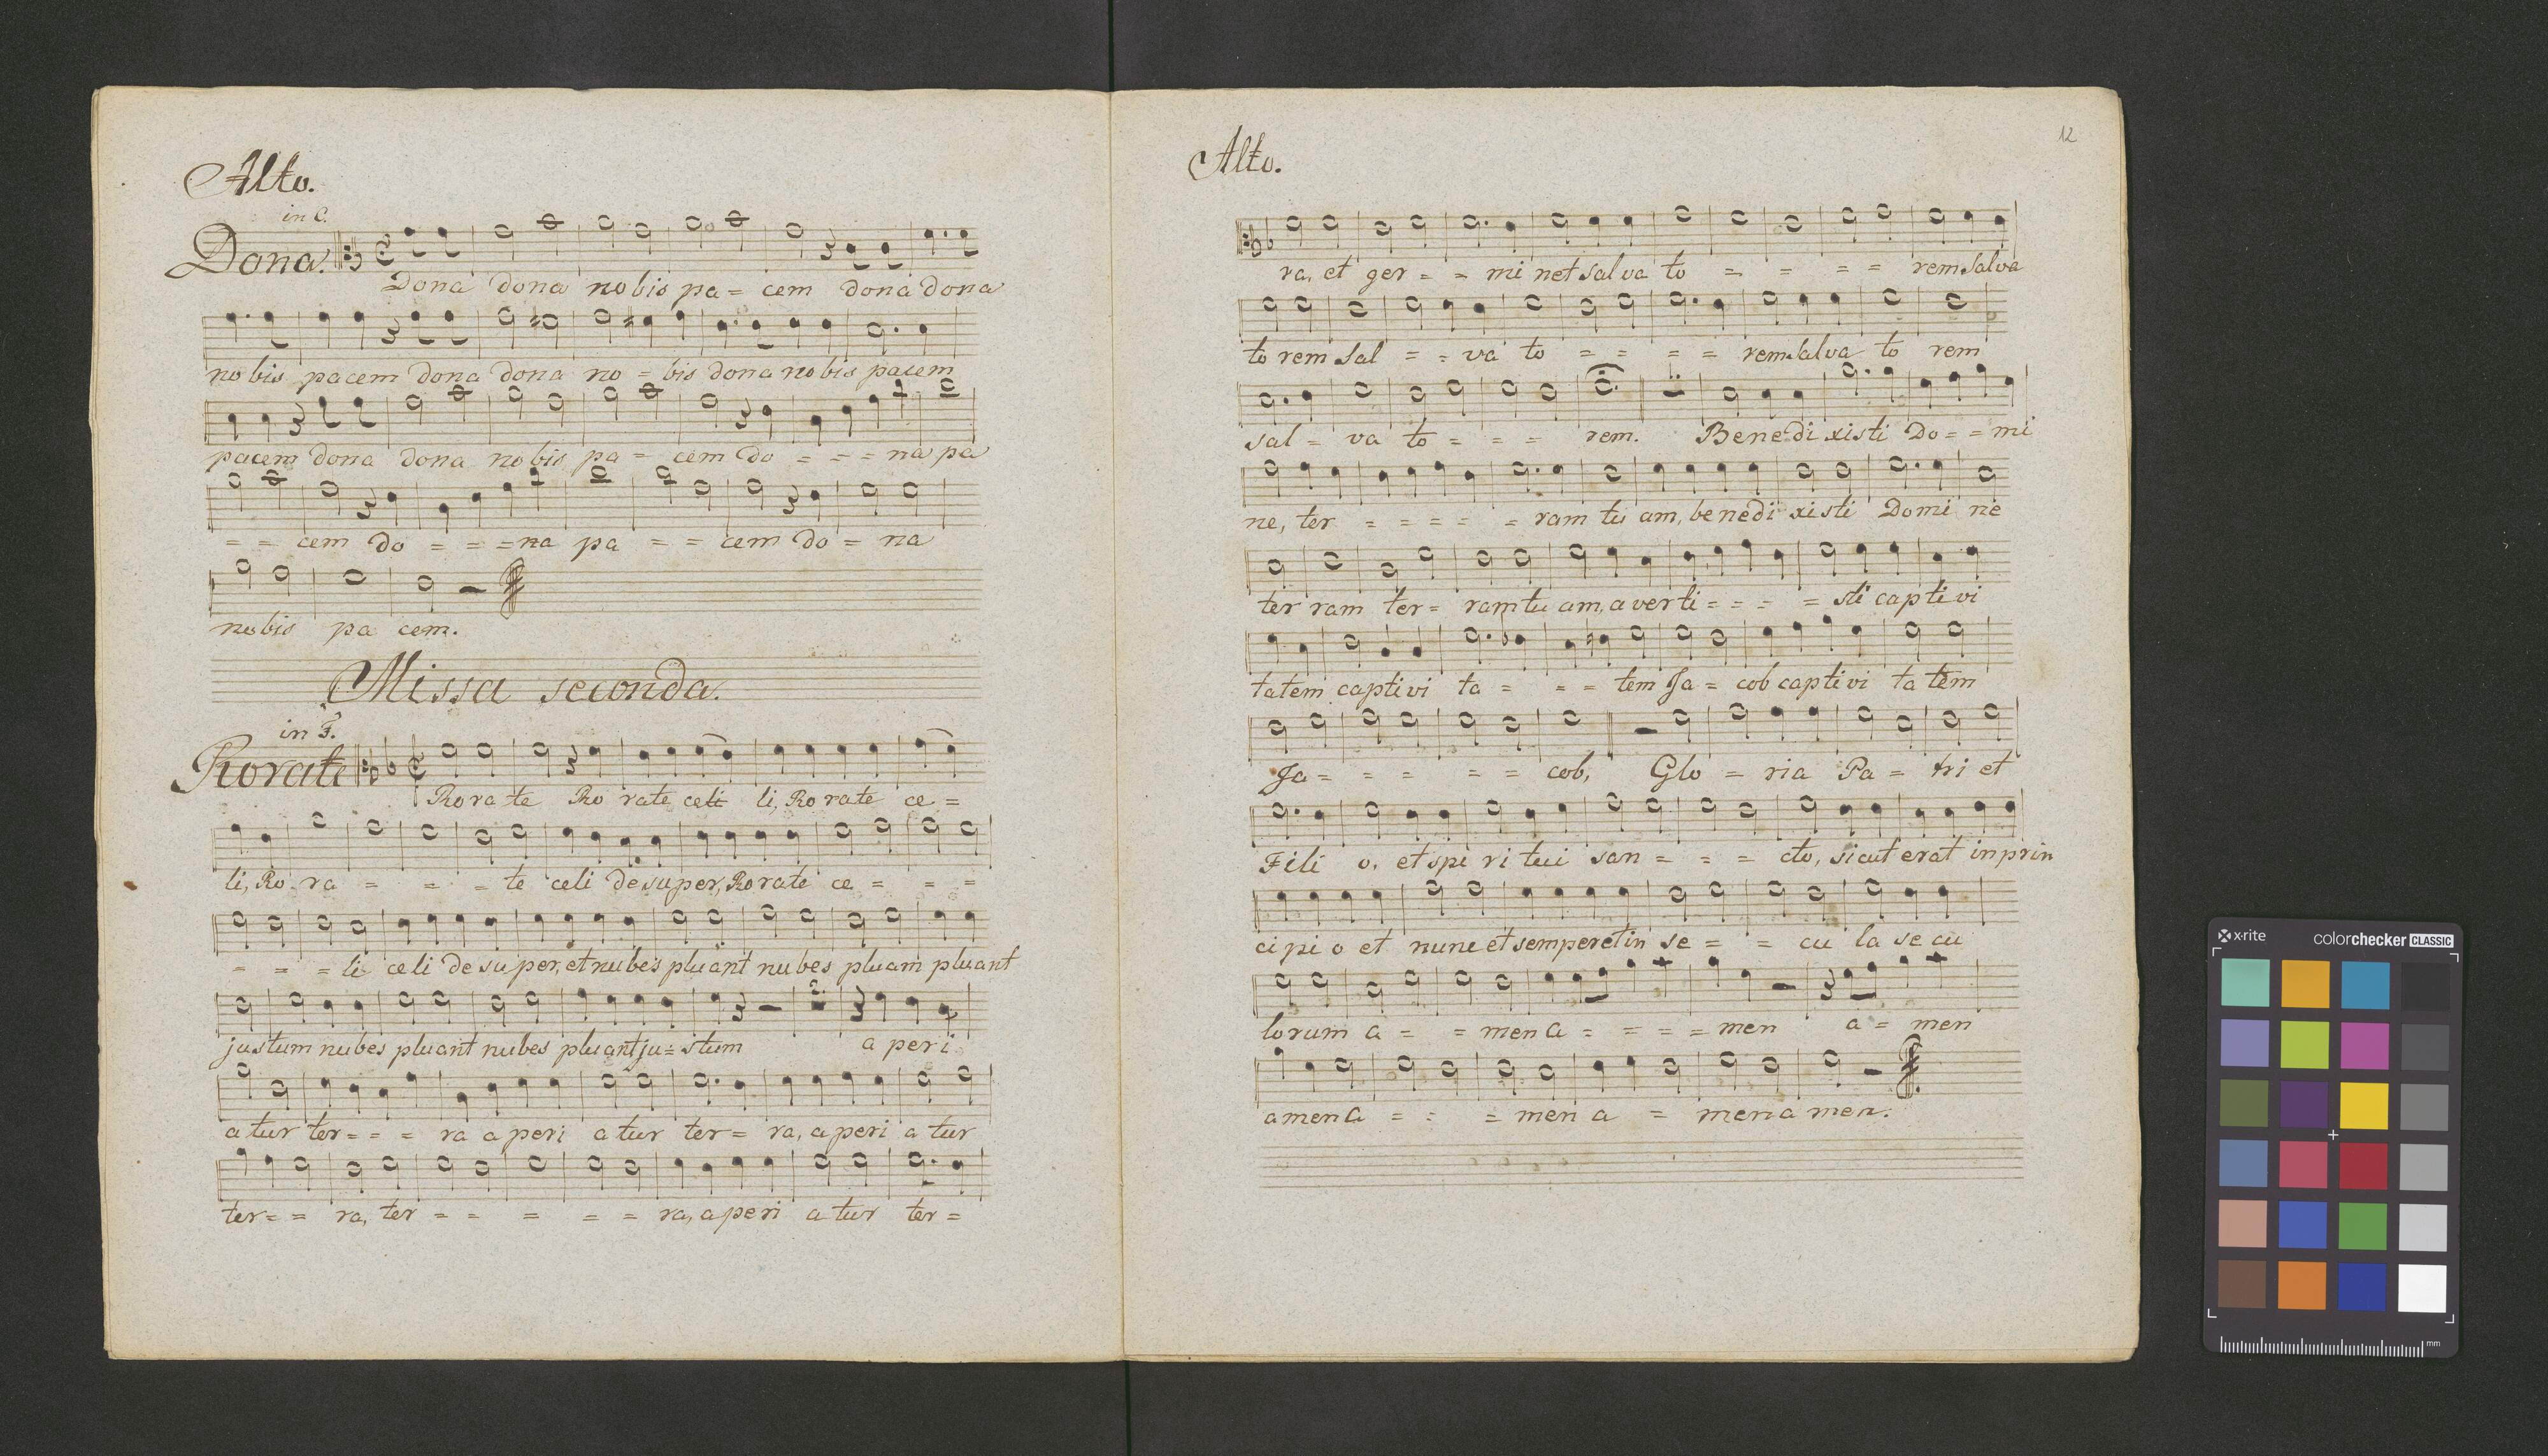 Alto.
in C.
Dona.
Dona dona nobis pa = cem dona dona
nobis pacem dona dona no = bis dona nobis pacem
pacem dona dona nobis pa = cem do = = = na pa
= = cem do = = = na pa = = cem do = na
nobis pa cem.
Missa seconda.
in F.
Rorate
Rorate Ro rate celi li, Ro rate ce =
li, Ro ra = = = te celi desuper, Rorate ce = = =
= = = li celi desuper, et nubes pluant nubes pluam pluant
justum nubes pluant nubes pluant ju = stum a peri
a tur ter = = = ra a peri a tur ter = ra, a peri a tur
ter = = ra, ter = = = = = ra, a peri a tur ter =
Alto.
12
ra, et ger = = mi net sal va to = = = = rem salva
to rem sal = = va to = = = = rem salva to rem
sal = va to = = = rem. Benedi xisti Do = = mi
ne, ter = = = = = ram tu am, benedi xisti Domi ne
ter ram ter = ram tu am, a verti = = = = sti captivi
tatem captivi ta = = = tem Ja = cob captivi ta tem
Ja = = = = = cob, Glo = ria Pa = tri et
Fili o, et spi ri tui san = = = cto, sicut erat in prin
cipi o et nunc et semper et in se = = cu la se cu
lorum a = = men a = = = = men a = men
amen a = = = men a = men a men.
x·rite
colorchecker CLASSIC
mm